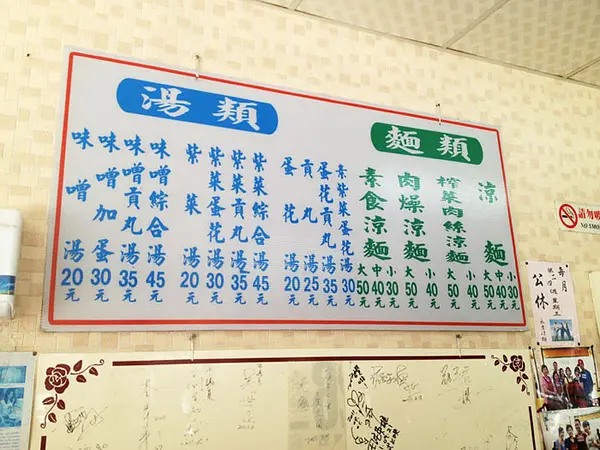 湯類
味噌湯20元
味噌加蛋湯30元
味噌貢丸湯35元
味噌綜合湯45元
紫菜湯20元
紫菜蛋花湯30元
紫菜貢丸湯35元
紫菜綜合湯45元
蛋花湯20元
貢丸湯25元
蛋花貢丸湯35元
素紫菜蛋花湯30元
麵類
素食涼麵 大50元 中40元 小30元
肉燥涼麵 大50元 小40元
榨菜肉絲涼麵 大50元 小40元
涼麵 大50元 中40元 小30元
請勿吸
NO SMO
每月
公休